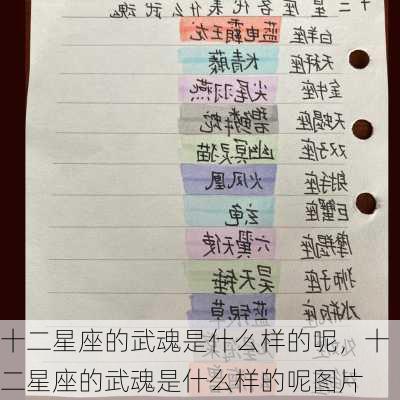 十二星座各代表什么武魂
白羊座 蓝电霸王龙
天秤座 长青藤
金牛座 尖尾羽燕
天蝎座 碧鳞蛇
双子座 幽冥灵猫
射手座 火凤凰
巨蟹座 玄龟
摩羯座 六翼天使
狮子座 昊天锤
水瓶座 蓝银草
十二星座的武魂是什么样的呢，十
二星座的武魂是什么样的呢图片